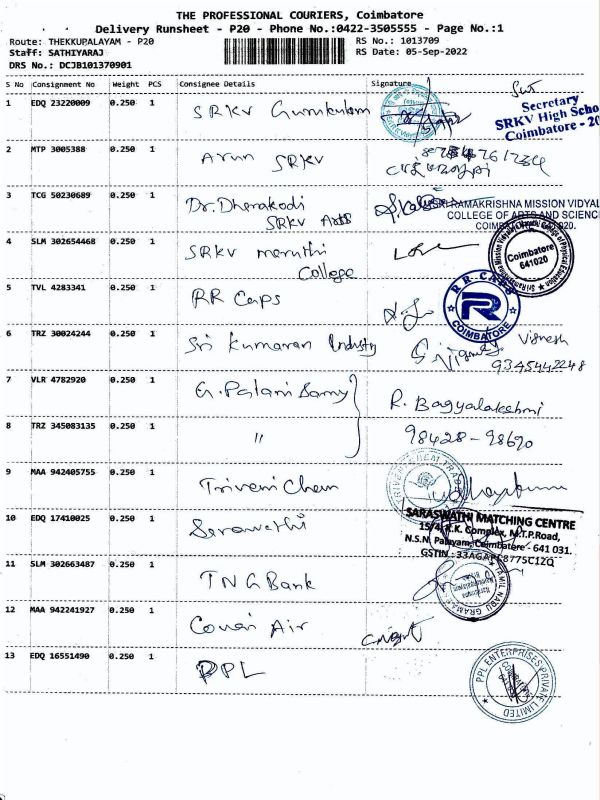 THE PROFESSIONAL COURIERS, Coimbatore
Delivery Runsheet - P20 - Phone No.:0422-3505555 - Page No.:1
Route: THEKKUPALAYAM - P20
RS No.: 1013709
Staff: SATHIYARAJ
RS Date: 05-Sep-2022
DRS No.: DCJB101370901
S No Consignment No Weight PCS Consignee Details Signature
1 EDQ 23220009 0.250 1 SRKV Gurukulam
Secretary
SRKV High
Coimbatore - 20
2 MTP 3005388 0.250 1 Arun SRKV
3 TCG 50230689 0.250 1 Dr. Dherakodi
SRKV Arts
SRI RAMAKRISHNA MISSION VIDYAL
COLLEGE OF ARTS AND SCIENC
COIMBATORE 641020.
4 SLM 302654468 0.250 1 SRKV maruthi
College
Coimbatore
641020
5 TVL 4283341 0.250 1 RR Caps
R.R. CAPS
R
COIMBATORE
6 TRZ 30024244 0.250 1 Sri Kumaran Industry
Vignesh
9345442248
7 VLR 4782920 0.250 1 G. Palani Samy
R. Bagyalakshmi
8 TRZ 345083135 0.250 1 "
98428-98690
9 MAA 942405755 0.250 1 Triveni Chem
SARASWATHI MATCHING CENTRE
15/4, K.K. Complex, M.T.P.Road,
N.S.N. Palayam, Coimbatore - 641 031.
10 EDQ 17410025 0.250 1
11 SLM 302663487 0.250 1 TNG Bank
12 MAA 942241927 0.250 1 Covai Air
13 EDQ 16551490 0.250 1 PPL
PPL ENTERPRISES PRIVATE LIMITED